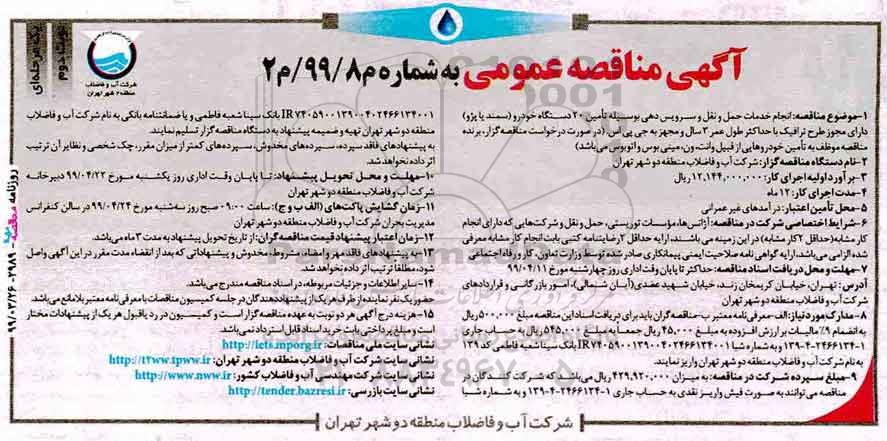 آگهی مناقصه عمومی به شماره م۹۹/۸/م۲
نوبت دوم
یک مرحله‌ای
شرکت آب و فاضلاب
منطقه ۲ شهر تهران
۱-موضوع مناقصه: انجام خدمات حمل و نقل و سرویس دهی بوسیله تأمین ۲۰ دستگاه خودرو (سمند یا پژو)
دارای مجوز طرح ترافیک با حداکثر طول عمر ۳ سال و مجهز به جی پی اس. (در صورت درخواست مناقصه گزار، برنده
مناقصه موظف به تأمین خودروهایی از قبیل وانت، ون، مینی بوس و اتوبوس می‌باشد)
۲-نام دستگاه مناقصه گزار: شرکت آب و فاضلاب منطقه دو شهر تهران
۳-برآورد اولیه اجرای کار: ۱۲,۱۴۴,۰۰۰,۰۰۰ ریال
۴-مدت اجرای کار: ۱۲ ماه
۵-محل تأمین اعتبار: درآمدهای غیر عمرانی
۶-شرایط اختصاصی شرکت در مناقصه: آژانس‌ها، مؤسسات توریستی، حمل و نقل و شرکت‌هایی که دارای انجام
کار مشابه (حداقل ۲ کار مشابه) در این زمینه می باشند، ارایه حداقل ۲ رضایتنامه کتبی بابت انجام کار مشابه معرفی
شده الزامی می‌باشد، ارایه گواهی نامه صلاحیت ایمنی پیمانکاری صادر شده توسط وزارت تعاون، کار و رفاه اجتماعی
۷-مهلت و محل دریافت اسناد مناقصه: حداکثر تا پایان وقت اداری روز چهارشنبه مورخ ۹۹/۰۴/۱۱
آدرس: تهران، خیابان کریمخان زند، خیابان شهید عضدی (آبان شمالی)، امور بازرگانی و قراردادهای
شرکت آب و فاضلاب منطقه دو شهر تهران
۸-مدارک مورد نیاز: الف-معرفی نامه معتبر ب-مناقصه گران باید برای دریافت اسناد این مناقصه مبلغ ۵۰۰,۰۰۰ ریال
به انضمام ۹٪ مالیات بر ارزش افزوده به مبلغ ۴۵,۰۰۰ ریال جمعاً به مبلغ ۵۴۵,۰۰۰ ریال به حساب جاری
۱۳۹-۴-۲۴۶۶۱۳۴-۱ و به شماره شبا IR۷۴۰۵۹۰۰۱۳۹۰۰۴۰۲۴۶۶۱۳۴۰۰۱ بانک سینا شعبه فاطمی کد ۱۳۹
به نام شرکت آب و فاضلاب منطقه دو شهر تهران واریز نمایند.
۹-مبلغ سپرده شرکت در مناقصه: به میزان ۴۲۹,۹۲۰,۰۰۰ ریال می‌باشد که شرکت کنندگان در
مناقصه می‌توانند به صورت فیش واریز نقدی به حساب جاری ۱۳۹-۴-۲۴۶۶۱۳۴-۱ و به شماره شبا
IR۷۴۰۵۹۰۰۱۳۹۰۰۴۰۲۴۶۶۱۳۴۰۰۱ بانک سینا شعبه فاطمی و یا ضمانتنامه بانکی به نام شرکت آب و فاضلاب
منطقه دو شهر تهران تهیه و ضمیمه پیشنهاد به دستگاه مناقصه گزار تسلیم نمایند.
به پیشنهادهای فاقد سپرده، سپرده‌های مخدوش، سپرده‌های کمتر از میزان مقرر، چک شخصی و نظایر آن ترتیب
اثر داده نخواهد شد.
۱۰-مهلت و محل تحویل پیشنهاد: تا پایان وقت اداری روز یکشنبه مورخ ۹۹/۰۴/۲۲ دبیرخانه
شرکت آب و فاضلاب منطقه دو شهر تهران
۱۱-زمان گشایش پاکت‌های (الف، ب و ج): ساعت ۰۹:۰۰ صبح روز سه‌شنبه مورخ ۹۹/۰۴/۲۴ در سالن کنفرانس
مدیریت بحران شرکت آب و فاضلاب منطقه دو شهر تهران
۱۲-زمان اعتبار پیشنهاد قیمت مناقصه گران: از تاریخ تحویل پیشنهاد به مدت ۳ ماه می‌باشد.
۱۳-به پیشنهادهای فاقد مهر و امضاء، مشروط، مخدوش و پیشنهاداتی که بعد از انقضاء مدت مقرر در این آگهی واصل
شود، مطلقاً ترتیب اثر داده نخواهد شد.
۱۴-سایر اطلاعات و جزئیات مربوطه، در اسناد مناقصه مندرج می‌باشد.
حضور یک نفر نماینده از طرف هر یک از پیشنهاددهندگان در جلسه کمیسیون مناقصات با معرفی نامه معتبر بلامانع می باشد.
۱۵-هزینه درج آگهی هر دو نوبت به عهده مناقصه گزار است و کمیسیون در رد یا قبول هر یک از پیشنهادات مختار
است و مبلغ پرداختی بابت خرید اسناد قابل استرداد نمی‌باشد.
نشانی سایت ملی مناقصات: http://iets.mporg.ir
نشانی سایت شرکت آب و فاضلاب منطقه دو شهر تهران: http://t2ww.tpww.ir
نشانی سایت شرکت مهندسی آب و فاضلاب کشور: http://www.nww.ir
نشانی سایت بازرسی: http://tender.bazresi.ir
شرکت آب و فاضلاب منطقه دو شهر تهران
روزنامه مناقصه مزایده ۲۹۸۹-۹۹/۰۳/۲۶